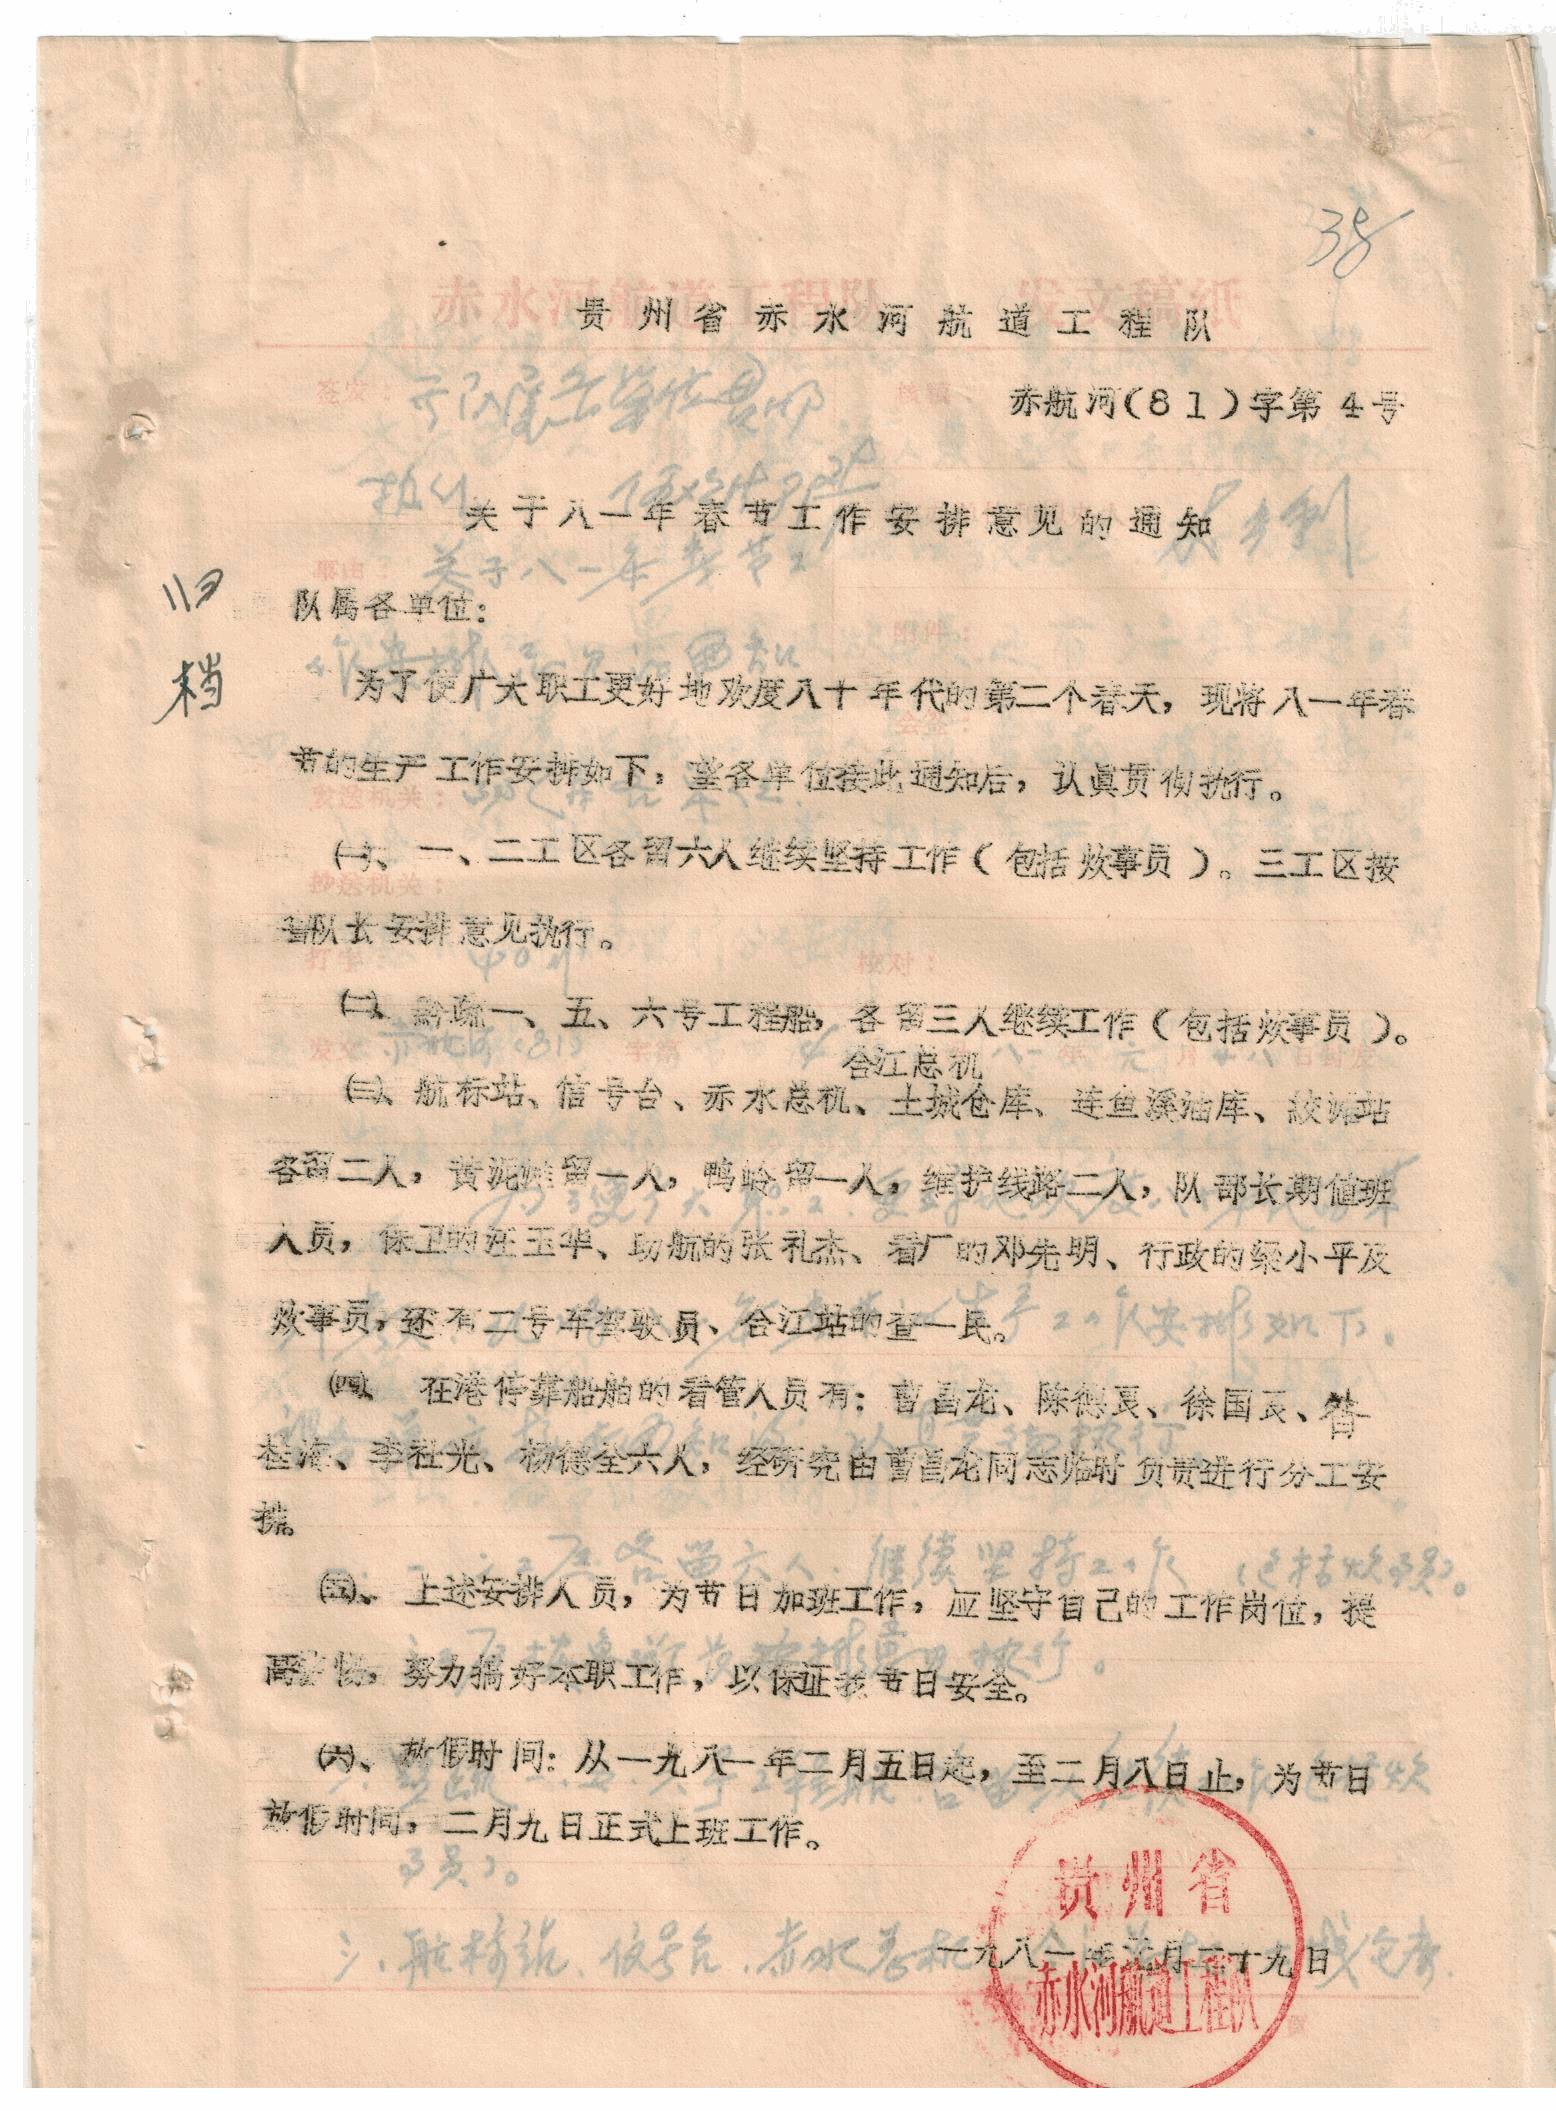 38
贵州省赤水河航道工程队
赤航河(81)字第4号
关于八一年春节工作安排意见的通知
归档
队属各单位：
为了使广大职工更好地欢度八十年代的第二个春天，现将八一年春
节的生产工作安排如下，望各单位接此通知后，认真贯彻执行。
㈠、一、二工区各留六人继续坚持工作(包括炊事员)。三工区按
队长安排意见执行。
㈡、黔疏一、五、六号工程船，各留三人继续工作(包括炊事员)。
合江总机
㈢、航标站、信号台、赤水总机、土城仓库、连鱼溪油库、绞滩站
各留二人，黄泥 留一人，鸭岭留一人，维护线路二人，队部长期值班
人员，保卫的汪玉华、助航的张礼杰、看厂的邓先明、行政的梁小平及
炊事员，还有二号车驾驶员、合江站的查一民。
㈣、在港停靠船舶的看管人员有：曹昌龙、陈德良、徐国良、
桂 、李社光、杨德全六人，经研究由曹昌龙同志临时负责进行分工安
排。
㈤、上述安排人员，为节日加班工作，应坚守自己的工作岗位，提
高警惕，努力搞好本职工作，以保证我节日安全。
㈥、放假时间：从一九八一年二月五日起，至二月八日止，为节日
放假时间，二月九日正式上班工作。
一九八一年元月二十九日
贵州省
赤水河航道工程队